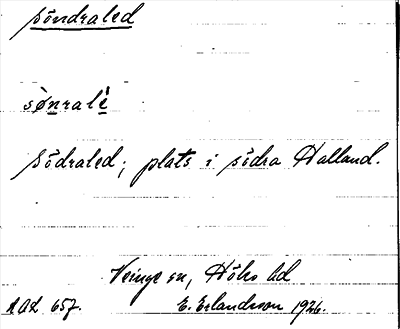 söndraled
sònralè
södraled; plats i södra Halland.
Veinge sn, Höks hd
AAL 657. E. Erlandsson 1926.